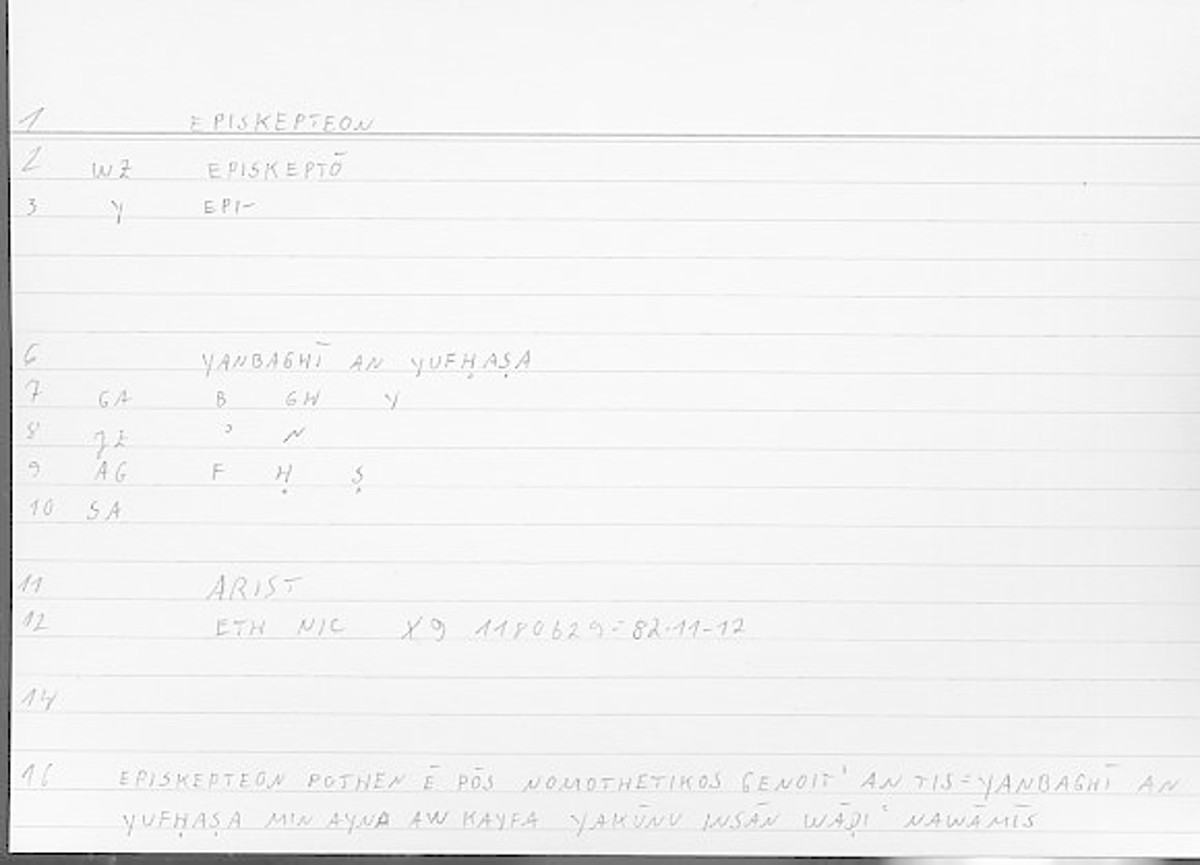 1 EPISKEPTEON
2 WZ EPISKEPTŌ
3 Y EPI-
6 YANBAGHĪ AN YUFḤAṢA
7 GA B GH Y
8 ʾ N
9 AG F Ḥ Ṣ
10 SA
11 ARIST
12 ETH NIC X9 1180b29=82.11-12
14
16 EPISKEPTEON POTHEN Ē PŌS NOMOTHETIKOS GENOIT' AN TIS=YANBAGHĪ AN
YUFḤAṢA MIN AYNA AW KAYFA YAKŪNU INSĀN WĀḌIʿ NAWĀMĪS